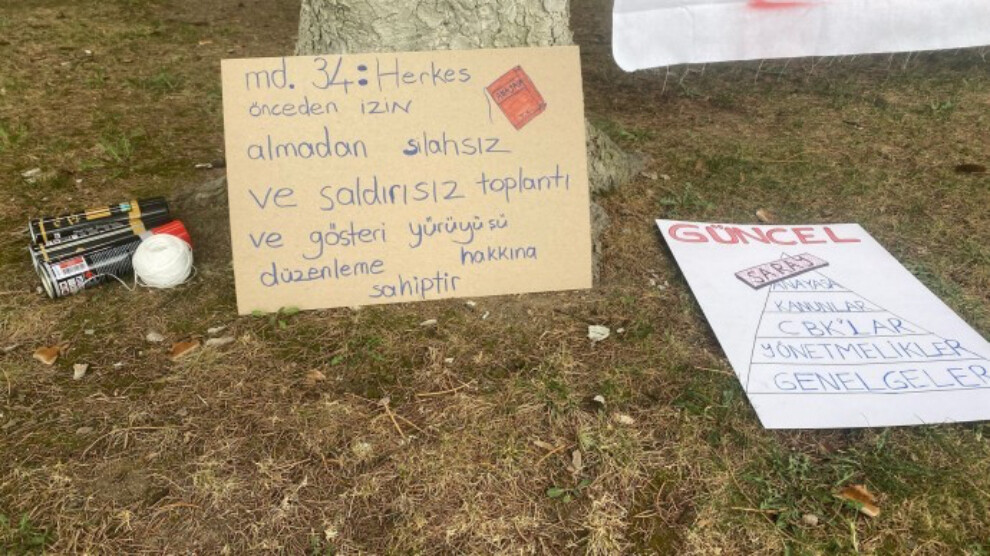 md. 34: Herkes
önceden izin
almadan silahsız
ve saldırısız toplantı
ve gösteri yürüyüşü
düzenleme hakkına
sahiptir
GÜNCEL
SARAY
ANAYASA
KANUNLAR
CBK'LAR
YÖNETMELİKLER
GENELGELER